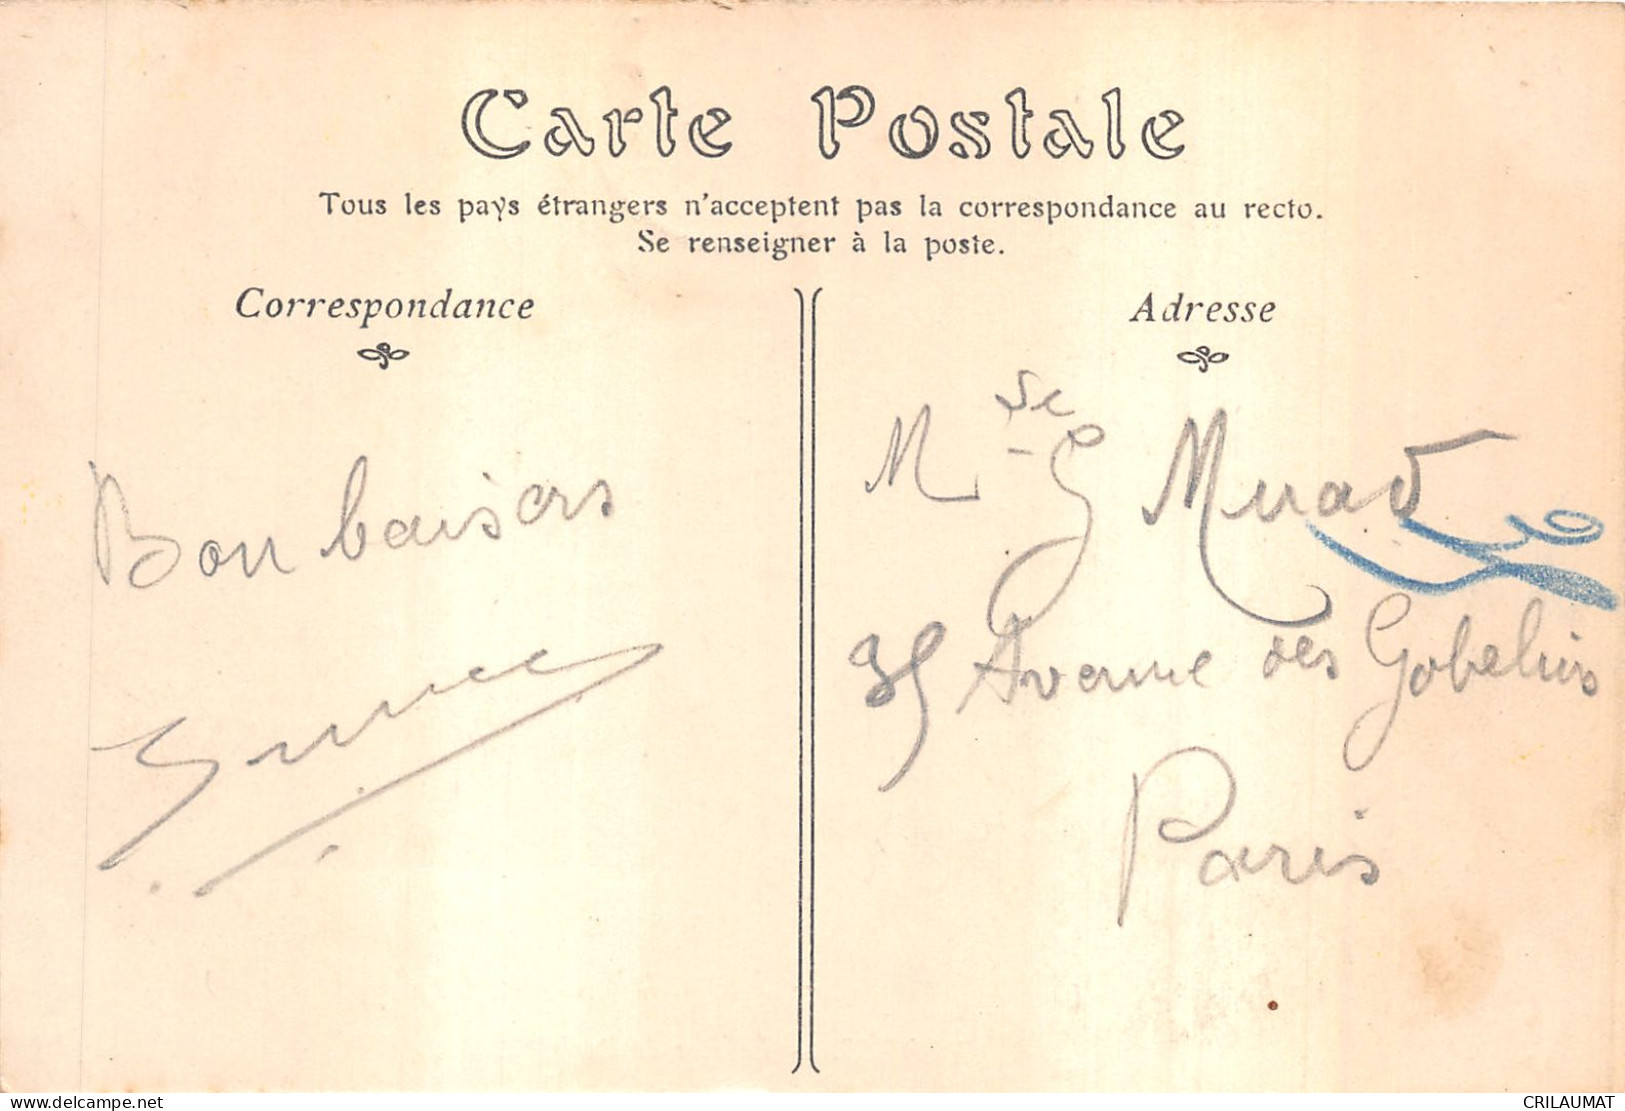 Carte Postale
Tous les pays étrangers n'acceptent pas la correspondance au recto.
Se renseigner à la poste.
Correspondance
Bon baisers
Adresse
M G Muad
35 Avenue des Gobelins
Paris
delcampe.net
CRILAUMAT